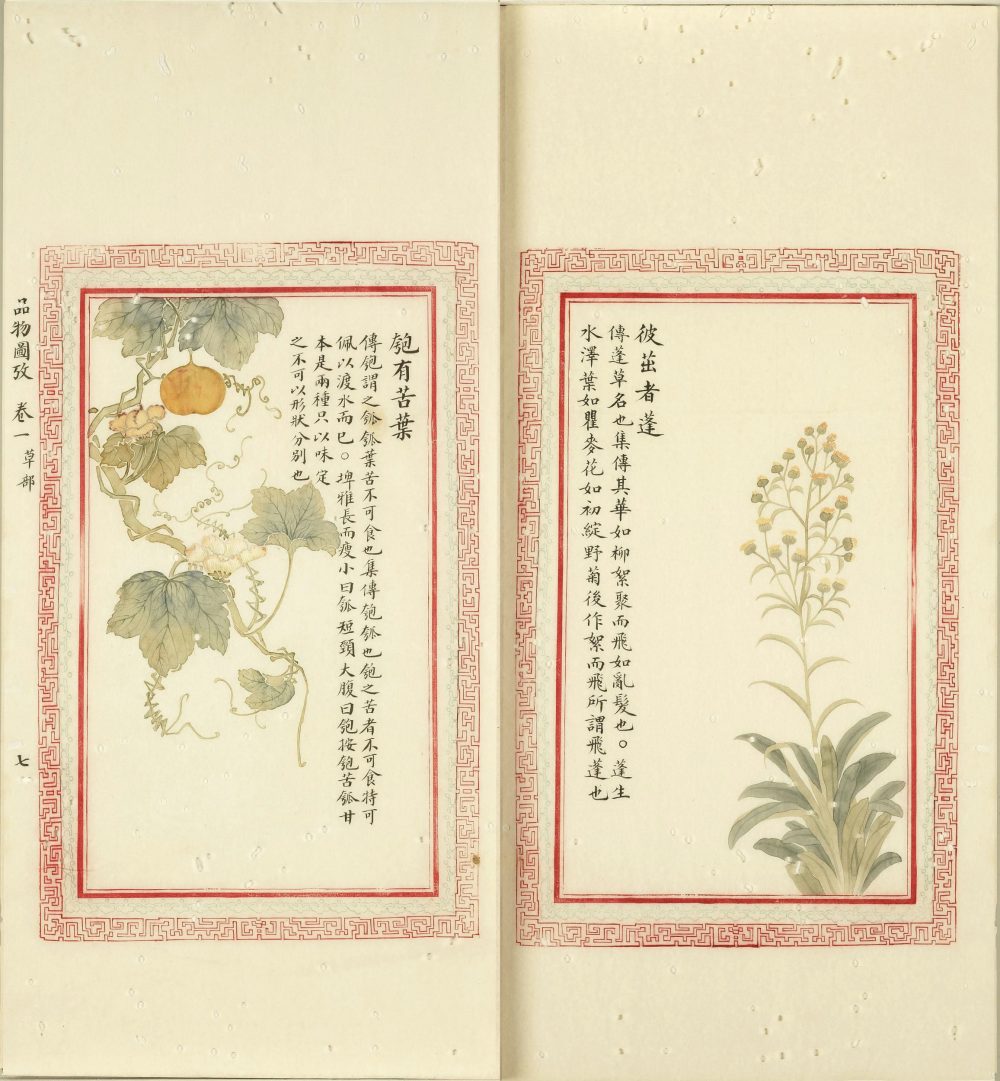 彼茁者蓬
傳蓬草名也集傳其華如柳絮聚而飛如亂髮也。蓬生
水澤葉如瞿麥花如初綻野菊後作絮而飛所謂飛蓬也
匏有苦葉
傳匏謂之瓠瓠葉苦不可食也集傳匏瓠也匏之苦者不可食特可
佩以渡水而已。埤雅長而瘦小曰瓠短頸大腹曰匏按匏苦瓠甘
本是兩種只以味定
之不可以形狀分別也
品物圖攷 卷一 草部 七